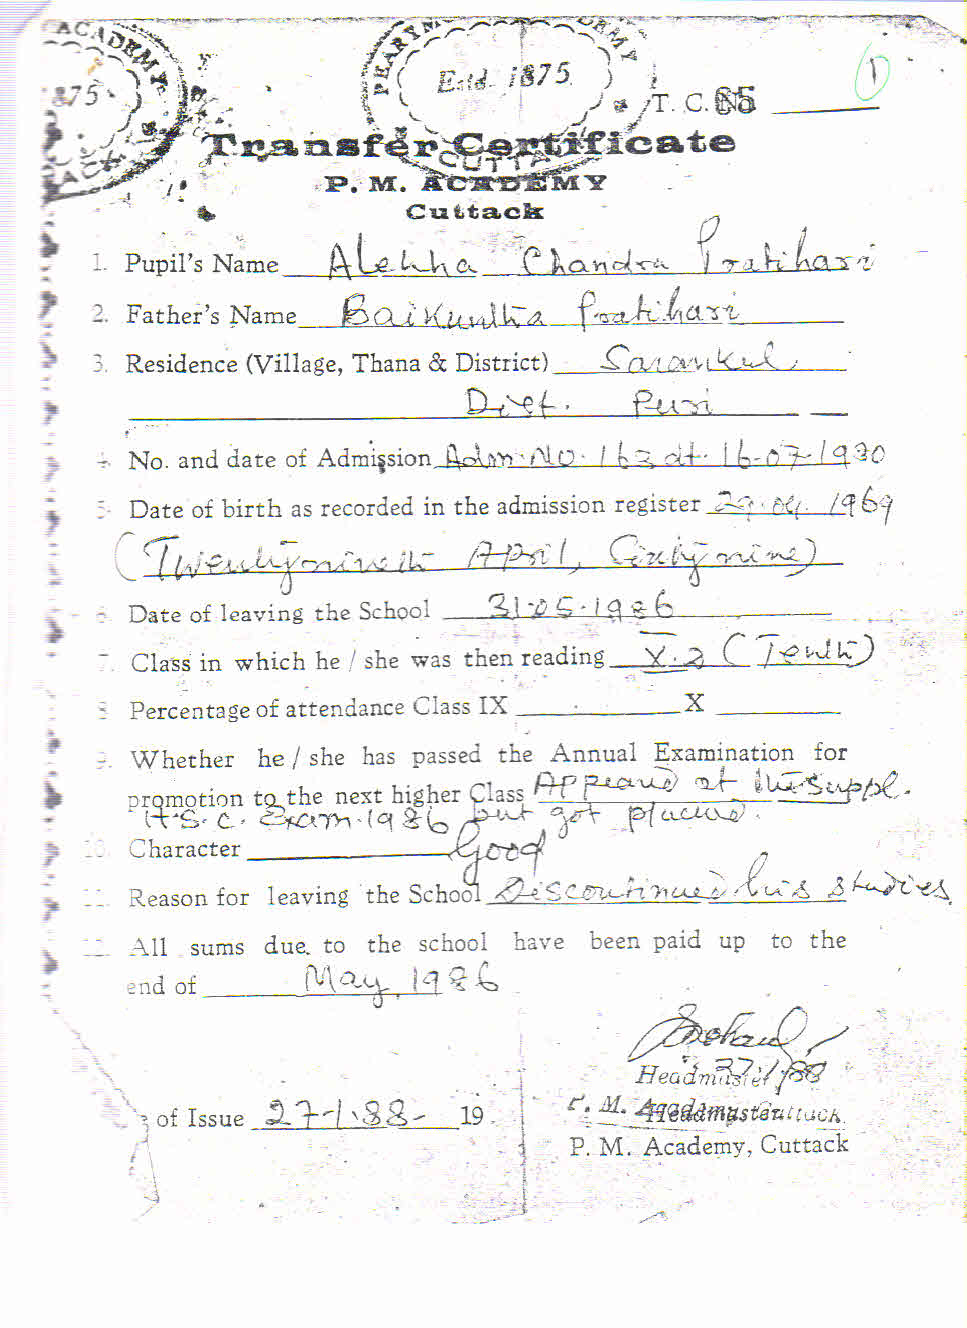 ACADEMY
PEARYM ADEMY
1875
Estd. 1875
T. C. No 65
1
Transfer Certificate
CUTTA
P. M. ACADEMY
Cuttack
1. Pupil's Name Alekha Chandra Pratihari
2. Father's Name Baikuntha Pratihari
3. Residence (Village, Thana & District) Sarankul
Dist. Puri
4. No. and date of Admission Adm. No. 163 dt. 16-07-1980
5. Date of birth as recorded in the admission register 29.04.1969
(Twentyninth April, Sixtynine)
6. Date of leaving the School 31.05.1986
7. Class in which he / she was then reading X.a (Tenth)
8. Percentage of attendance Class IX X
9. Whether he / she has passed the Annual Examination for
promotion to the next higher Class Appeared at the Suppl.
H.S.C. Exam. 1986 but got placed.
10. Character Good
11. Reason for leaving the School Discontinued his studies.
12. All sums due to the school have been paid up to the
end of May, 1986
Headmaster
27/1/88
P. M. Academy Cuttack
Headmaster
of Issue 27-1-88- 19
P. M. Academy, Cuttack